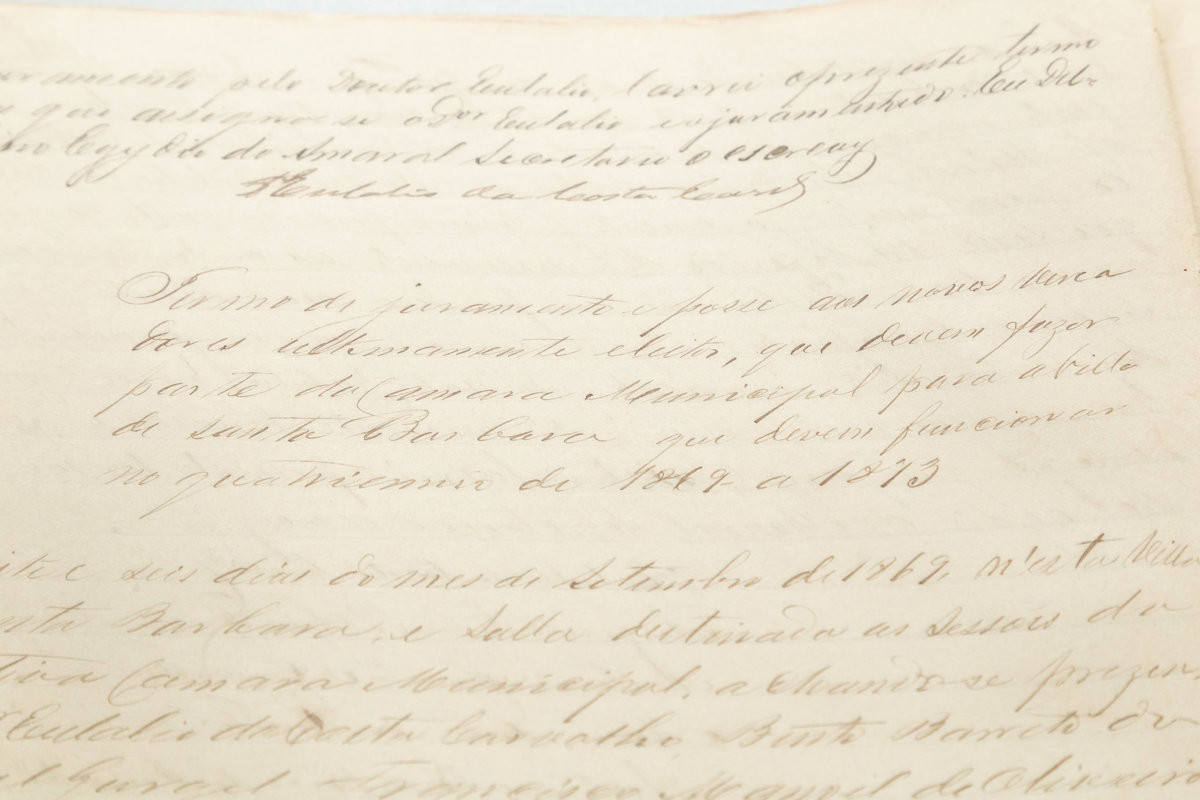 juramento pelo Doutor Eulalio, lavrei oprezente termo
que assignase o Dor Eulalio eojuramentado. Eu Del-
fino Egydio do Amaral Secretario o escrevy
Eulalio da Costa Carv
Termo de juramento e posse aos novos verea
dores ultimamente eleitos, que devem fazer
parte da Camara Municipal para a Villa
de Santa Barbara que devem funcionar
no quatriennio de 1869 a 1873
e seis dias do mes de Setembro de 1869, n'esta Villa
Barbara, e Salla destinada as Sessões da
Camara Municipal, achando-se prezen
Eulalio da Costa Carvalho, Bento Barreto do
Gurgel Francisco Manoel de Oliveira